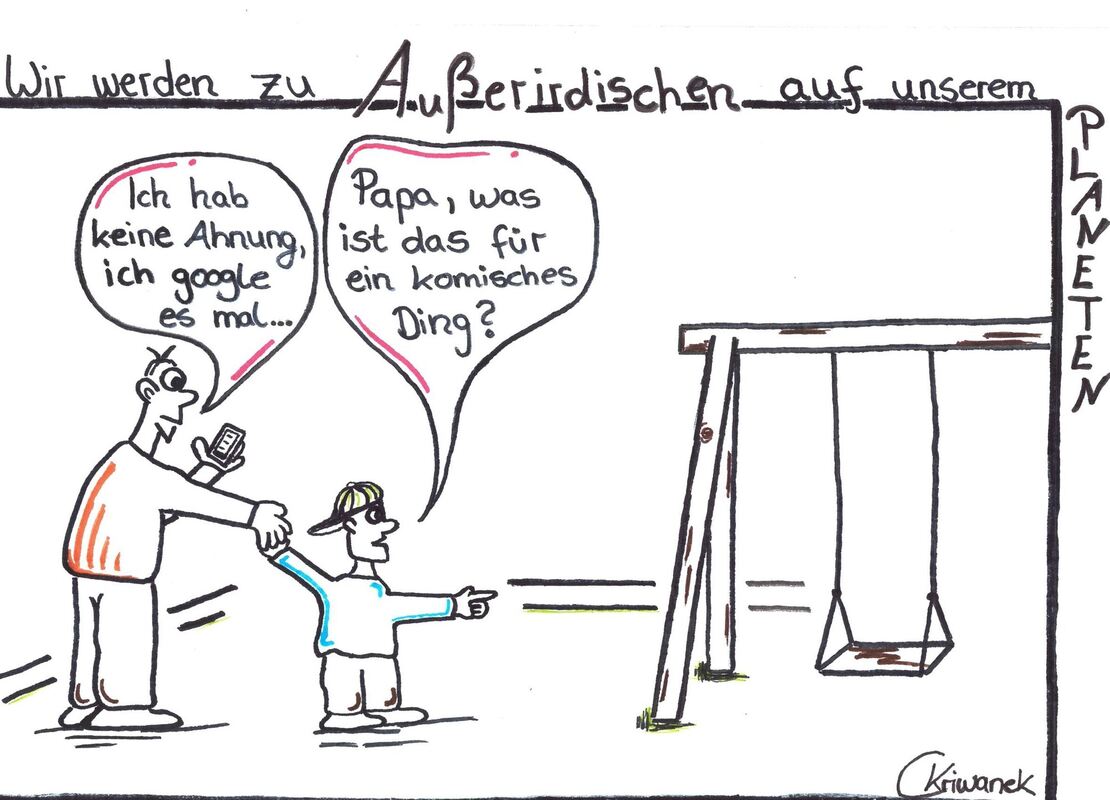 Wir werden zu Außerirdischen auf unserem
PLANETEN
Ich hab
keine Ahnung,
ich google
es mal...
Papa, was
ist das für
ein komisches
Ding?
Kriwanek